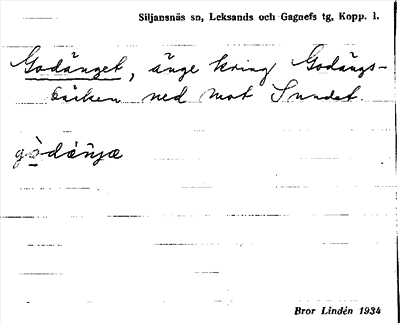 Siljansnäs sn, Leksands och Gagnefs tg, Kopp. l.
Godänget, änge kring Godängs-
bäcken ned mot Sundet.
Bror Lindén 1934